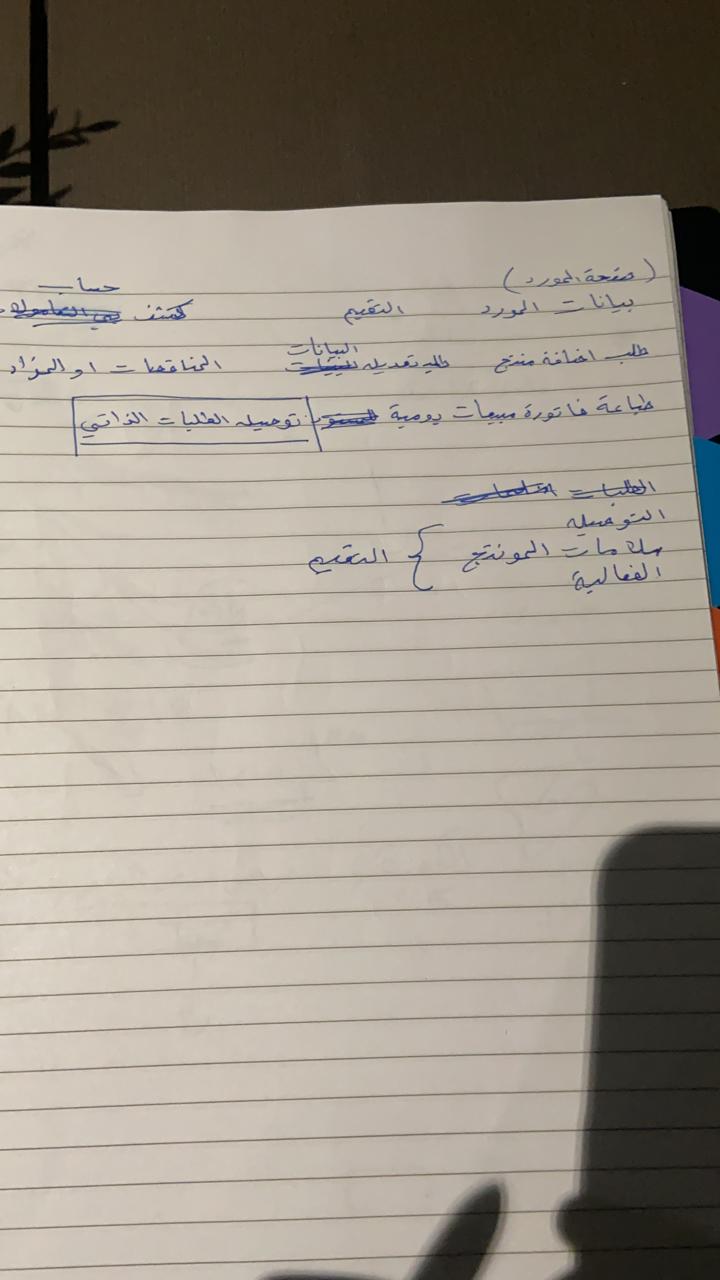 (صفحة المورد)
بيانات المورد التقيم كشف حساب
طلب اضافة منتج طلب تعديل البيانات المناقصات او المزاد
طباعة فاتورة مبيعات يومية توصيل الطلبات الذاتي
الطلبات
التوصيل
سلامات المونتج } التقيم
الفعالية